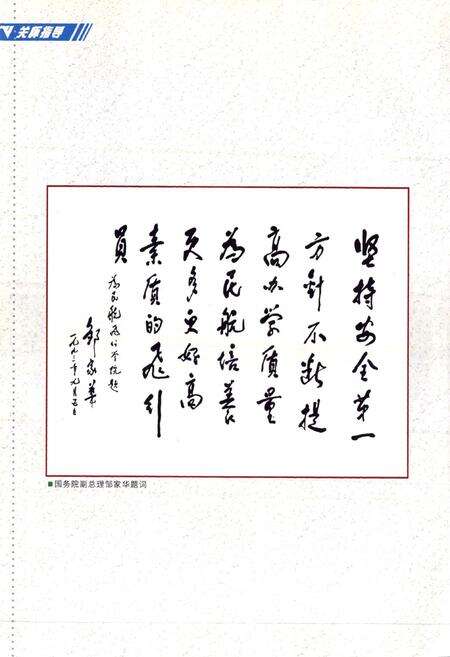 关怀指导
坚持安全第一
方针不断提
高办学质量
为民航培养
更多更好高
素质的飞行
员
为民航飞行学院题
邹家华
一九九二年九月五日
国务院副总理邹家华题词